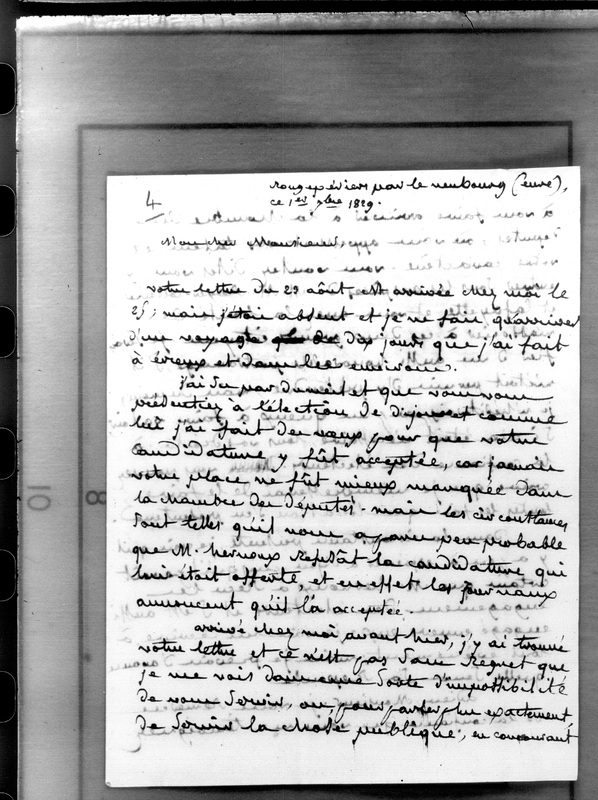 rougepériers par le neubourg (eure),
ce 1er 7bre 1829.
4
Mon cher Monsieur,
votre lettre du 23 août, est arrivée chez moi le
25; mais j'étais absent et je ne fais qu'arriver
d'un voyage de dix jours que j'ai fait
à évreux et dans les environs.
J'ai su par dumeilet que vous vous
présentiez à l'élection de dijon et comme
lui j'ai fait des vœux pour que votre
candidature y fût acceptée, car jamais
votre place ne fût mieux marquée dans
la chambre des députés. mais les circonstances
sont telles qu'il nous a paru peu probable
que M. hernoux refusât la candidature qui
lui était offerte, et en effet les journaux
annoncent qu'il l'a acceptée.
arrivé chez moi avant hier, j'y ai trouvé
votre lettre et ce n'est pas sans regret que
je me vois dans une sorte d'impossibilité
de vous servir, ou, pour parler plus exactement,
de servir la chose publique, en concourant
10
8